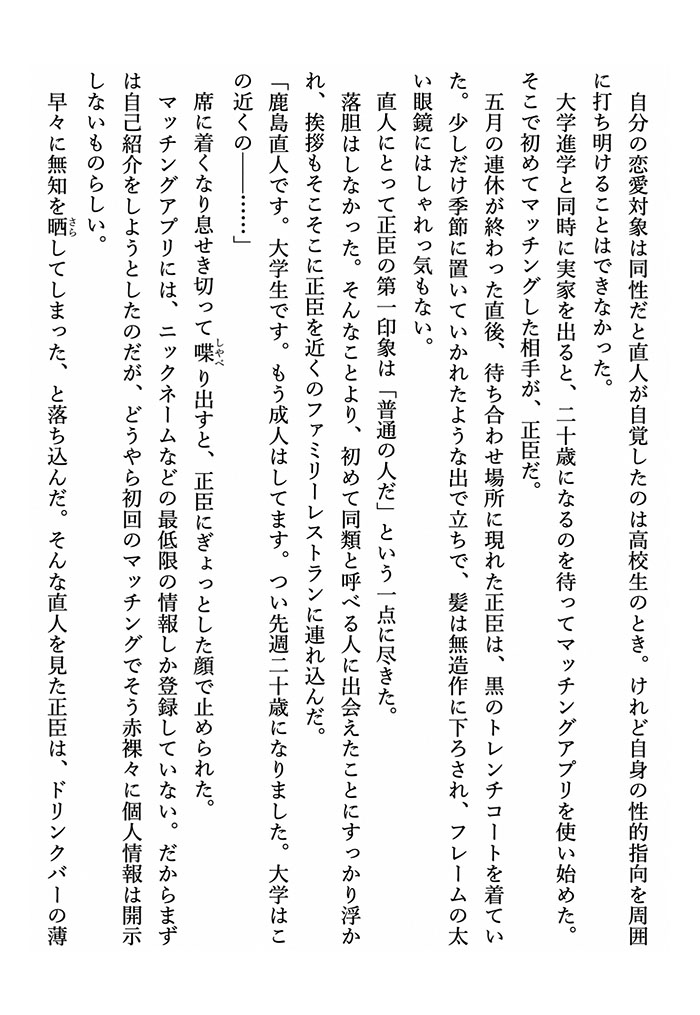 自分の恋愛対象は同性だと直人が自覚したのは高校生のとき。けれど自身の性的指向を周囲
に打ち明けることはできなかった。
　大学進学と同時に実家を出ると、二十歳になるのを待ってマッチングアプリを使い始めた。
そこで初めてマッチングした相手が、正臣だ。
　五月の連休が終わった直後、待ち合わせ場所に現れた正臣は、黒のトレンチコートを着てい
た。少しだけ季節に置いていかれたような出で立ちで、髪は無造作に下ろされ、フレームの太
い眼鏡にはしゃれっ気もない。
　直人にとって正臣の第一印象は「普通の人だ」という一点に尽きた。
　落胆はしなかった。そんなことより、初めて同類と呼べる人に出会えたことにすっかり浮か
れ、挨拶もそこそこに正臣を近くのファミリーレストランに連れ込んだ。
「鹿島直人です。大学生です。もう成人はしてます。つい先週二十歳になりました。大学はこ
の近くの――……」
　席に着くなり息せき切って喋り出すと、正臣にぎょっとした顔で止められた。
　マッチングアプリには、ニックネームなどの最低限の情報しか登録していない。だからまず
は自己紹介をしようとしたのだが、どうやら初回のマッチングでそう赤裸々に個人情報は開示
しないものらしい。
　早々に無知を晒してしまった、と落ち込んだ。そんな直人を見た正臣は、ドリンクバーの薄